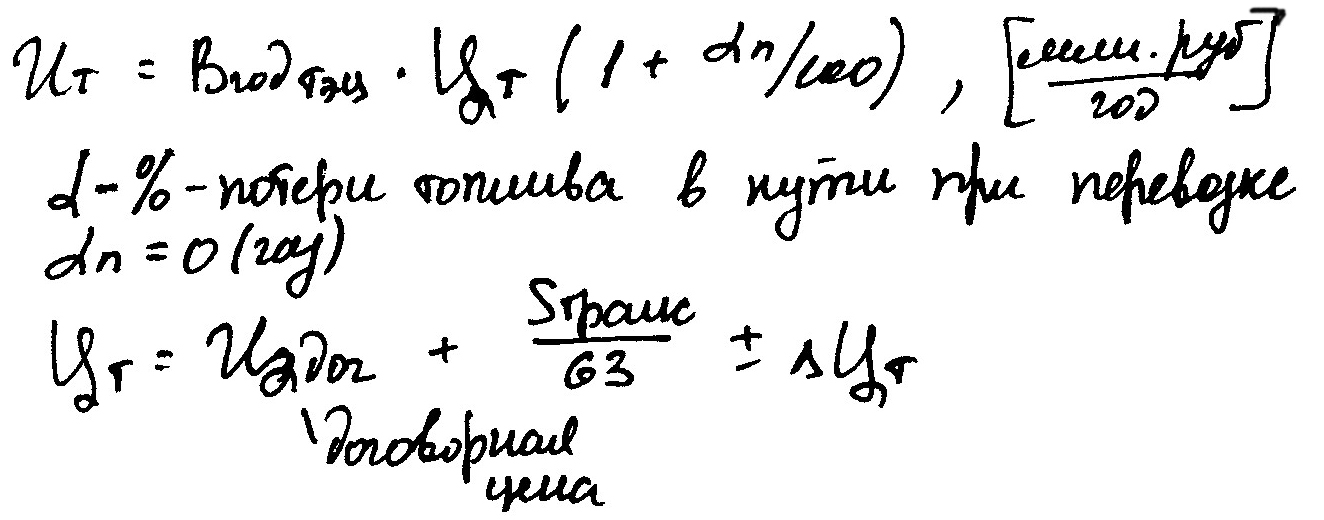 Ит = Вгод тэц · Цт (1 + αп/100), [млн. руб / год]
α - % - потери топлива в пути при перевозке
αп = 0 (газ)
Цт = Цдог + Sтранс / 63 ± ΔЦт
договорная
цена